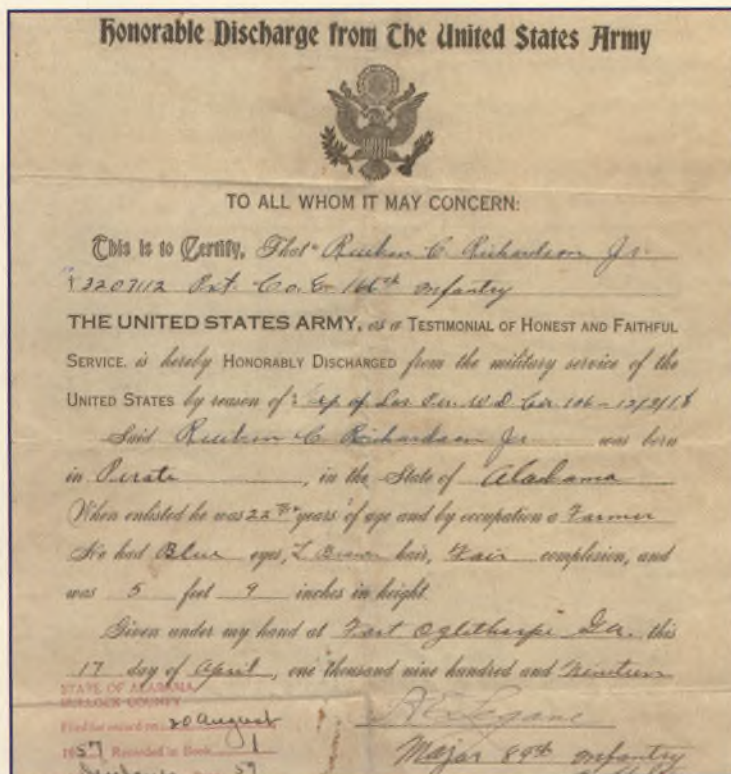 Honorable Discharge from The United States Army
TO ALL WHOM IT MAY CONCERN:
This is to Certify, That Reuben C. Richardson Jr.
3207112 Pvt. Co. E. 166th Infantry
THE UNITED STATES ARMY, as a TESTIMONIAL OF HONEST AND FAITHFUL
SERVICE, is hereby HONORABLY DISCHARGED from the military service of the
UNITED STATES by reason of: W D Cir. 106 - 12/3/18
Said Reuben C. Richardson Jr. was born
in Perote, in the State of Alabama
When enlisted he was 22 years of age and by occupation a Farmer
He had Blue eyes, L Brown hair, Fair complexion, and
was 5 feet 9 inches in height.
Given under my hand at Fort Oglethorpe Ga. this
17 day of April, one thousand nine hundred and Nineteen
STATE OF ALABAMA
BULLOCK COUNTY
Filed for record on 20 August
1957 Recorded in Book 1
Major Infantry